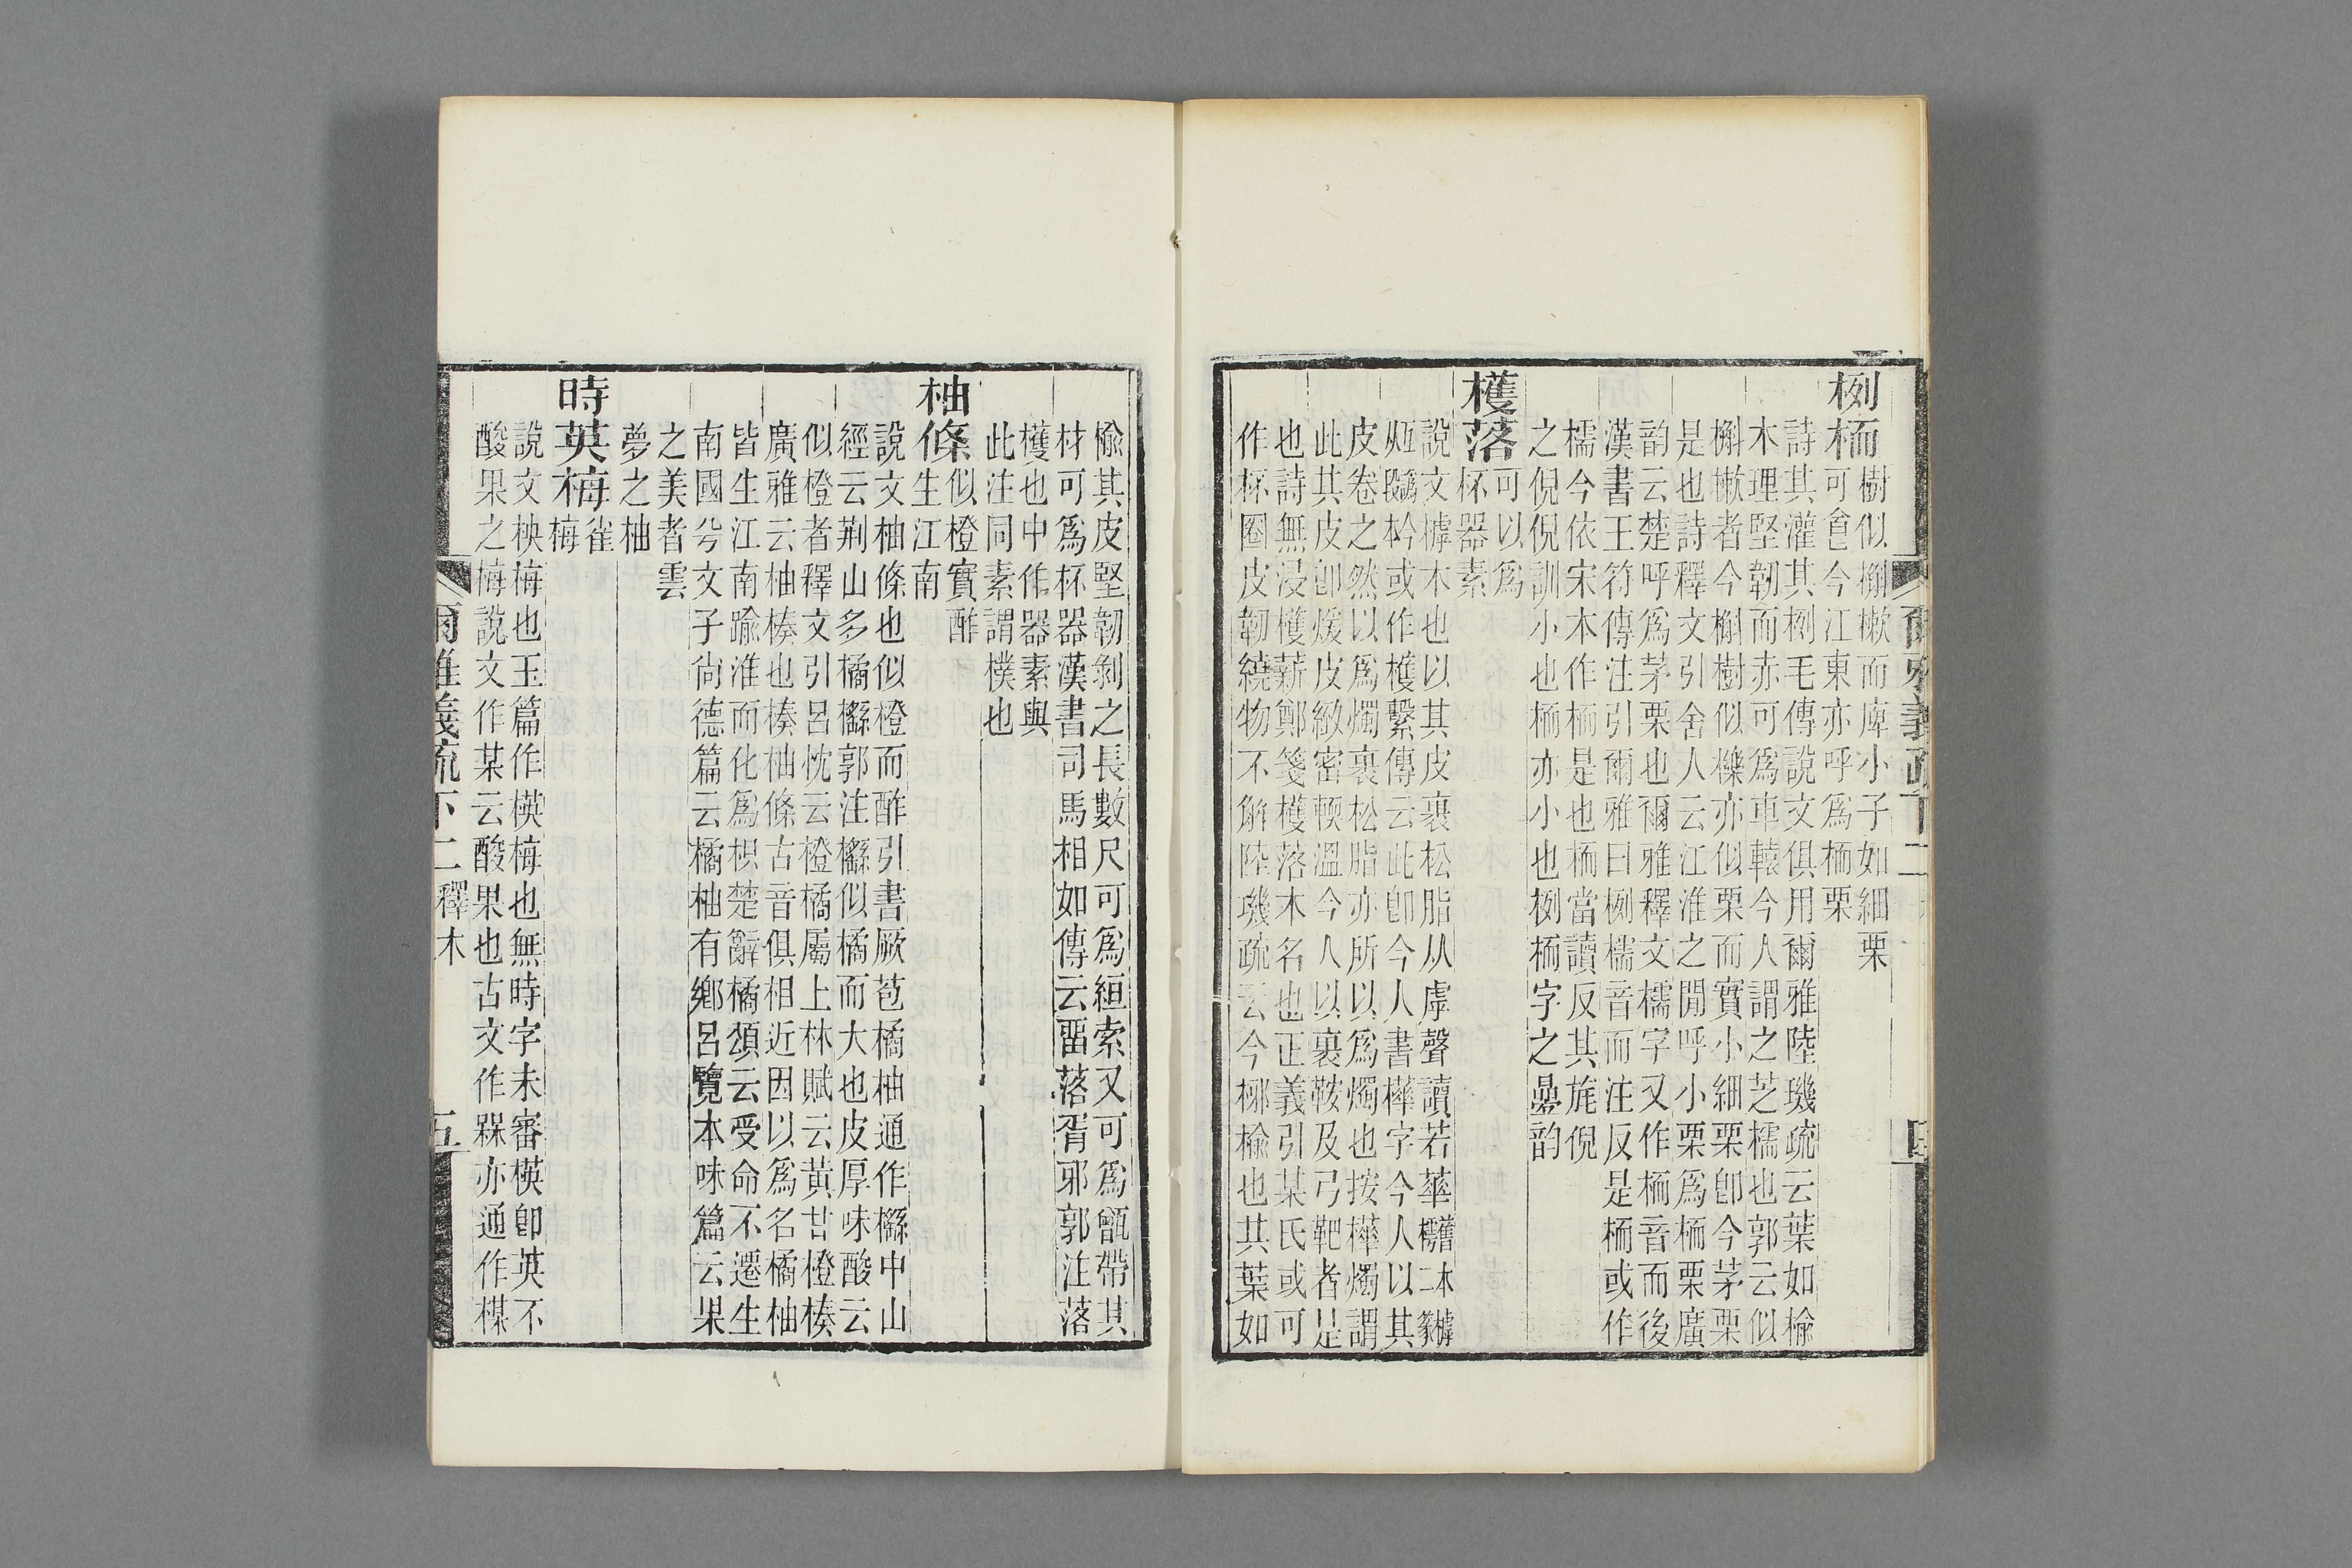 爾雅義疏下二
四
栵栭
樹似槲樕而庳小子如細栗
可食今江東亦呼爲栭栗
詩其灌其栵毛傳說文俱用爾雅陸璣疏云葉如榆
木理堅韌而赤可爲車轅今人謂之芝檽也郭云似
槲樕者今槲樹似櫟亦似栗而實小細栗卽今茅栗
是也詩釋文引舍人云江淮之閒呼小栗爲栭栗廣
韵云楚呼爲茅栗也爾雅釋文檽字又作栭音而後
漢書王符傳注引爾雅曰栭栵檽音而注反是栭或作
檽今依宋本作栭是也栭當讀反其旄倪
之倪倪訓小也栭亦小也栵栭字之曡韵
檴落
可以爲
杯器素
說文樗木也以其皮裹松脂从虖聲讀若華
或作檴繫傳云此卽今人書樺字今人以其
皮卷之然以爲燭裹松脂亦所以爲燭也按樺燭謂
此其皮卽煖皮緻密輭溫今人以裹鞍及弓靶者是
也詩無浸檴薪鄭箋檴落木名也正義引某氏或可
作杯圈皮韌繞物不解陸璣疏云今椰榆也其葉如
榆其皮堅韌剝之長數尺可爲絙索又可爲甑帶其
材可爲杯器漢書司馬相如傳云畱落胥邪郭注落
檴也中作器素與
此注同素謂樸也
柚條
似橙實酢
生江南
說文柚條也似橙而酢引書厥苞橘柚通作櫾中山
經云荆山多橘櫾郭注櫾似橘而大也皮厚味酸云
似橙者釋文引呂忱云橙橘屬上林賦云黃甘橙楱
廣雅云柚楱也楱柚條古音俱相近因以爲名橘柚
皆生江南踰淮而化爲枳楚辭橘頌云受命不遷生
南國兮文子尙德篇云橘柚有鄉呂覽本味篇云果
之美者雲
夢之柚
時英梅
雀
梅
說文柍梅也玉篇作楧梅也無時字未審楧卽英不
酸果之梅說文作某云酸果也古文作槑亦通作楳
爾雅義疏下二釋木
五